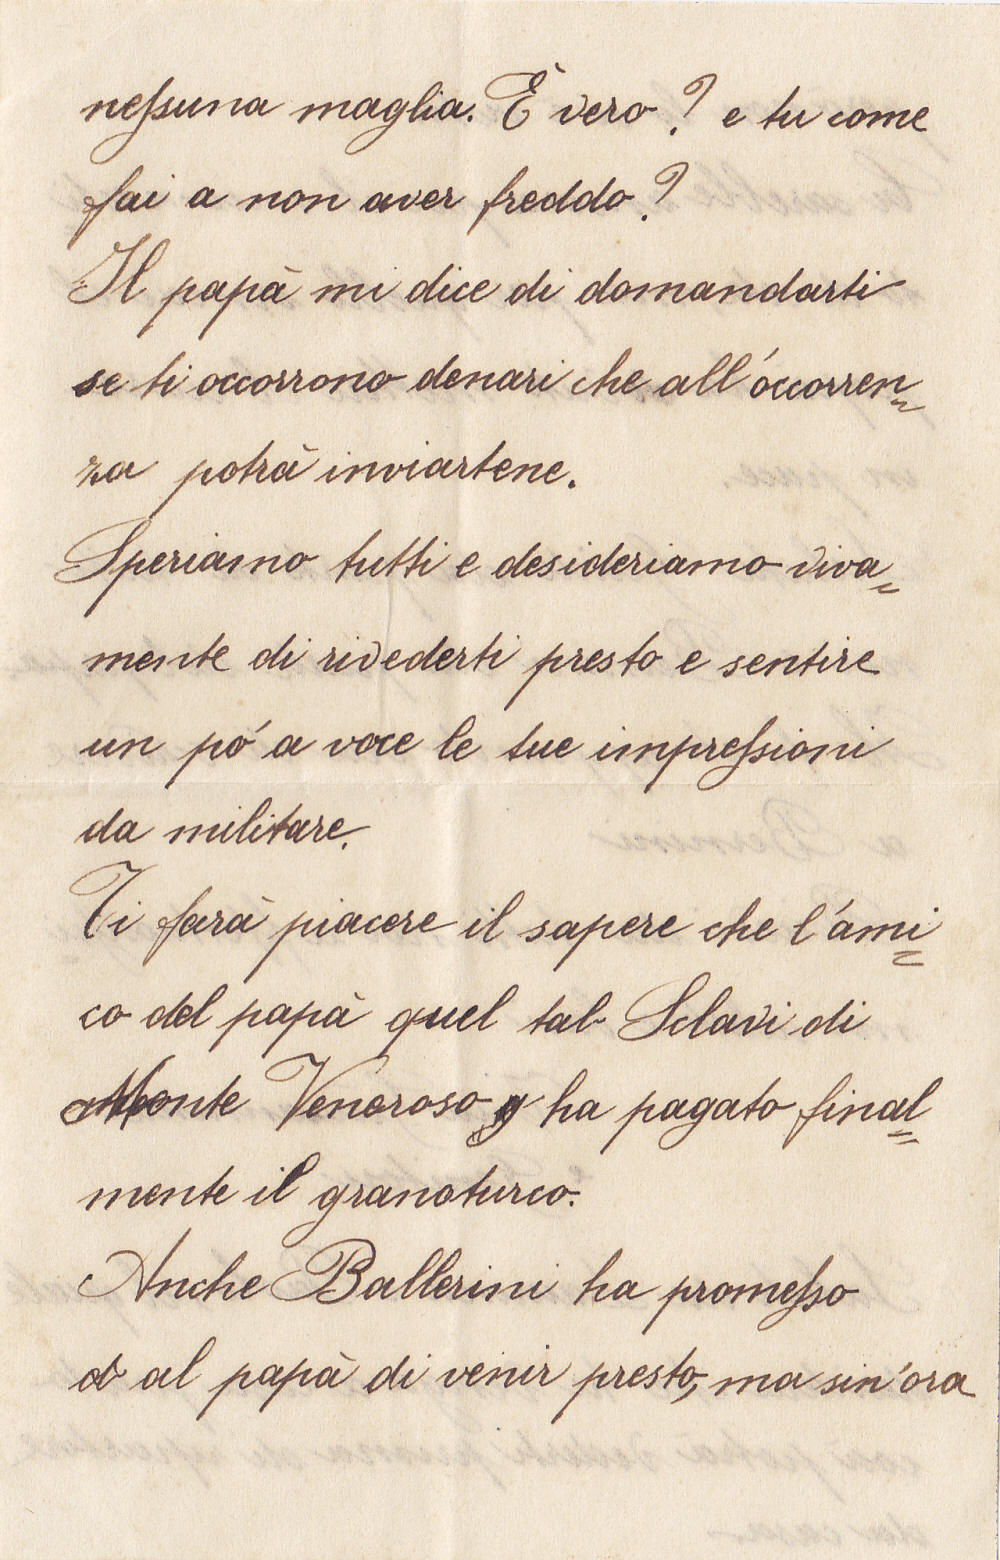 nessuna maglia. È vero? e tu come
fai a non aver freddo?
Il papà mi dice di domandarti
se ti occorrono denari che all'occorren=
za potrà inviartene.
Speriamo tutti e desideriamo viva=
mente di rivederti presto e sentire
un pó a voce le tue impressioni
da militare.
Ti farà piacere il sapere che l'ami=
co del papà quel tal Sclavi di
Monte Veneroso ha pagato final=
mente il granoturco.
Anche Ballerini ha promesso
al papà di venir presto, ma sin'ora